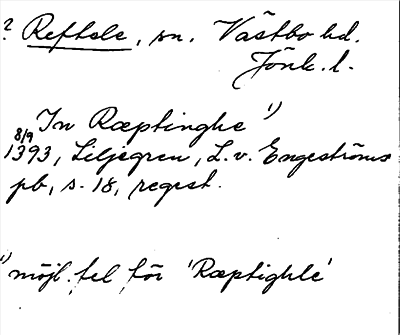 ? Reftele, sn. Västbo hd.
Jönk. l.
In Ræptinghe 1)
8/9
1393, Liljegren, L. v. Engeströms
pb, s. 18, regest.
1) möjl. fel för 'Ræptighle'